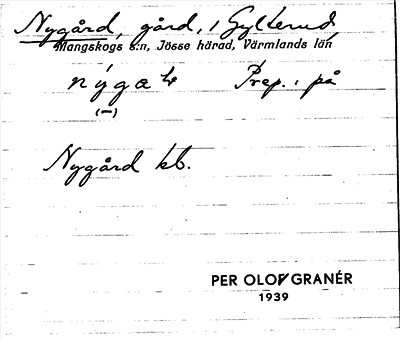 Nygård, gård, i Gylterud,
Mangskogs s:n, Jösse härad, Värmlands län
Prep.: på
(–)
Nygård kb.
PER OLOF GRANÉR
1939